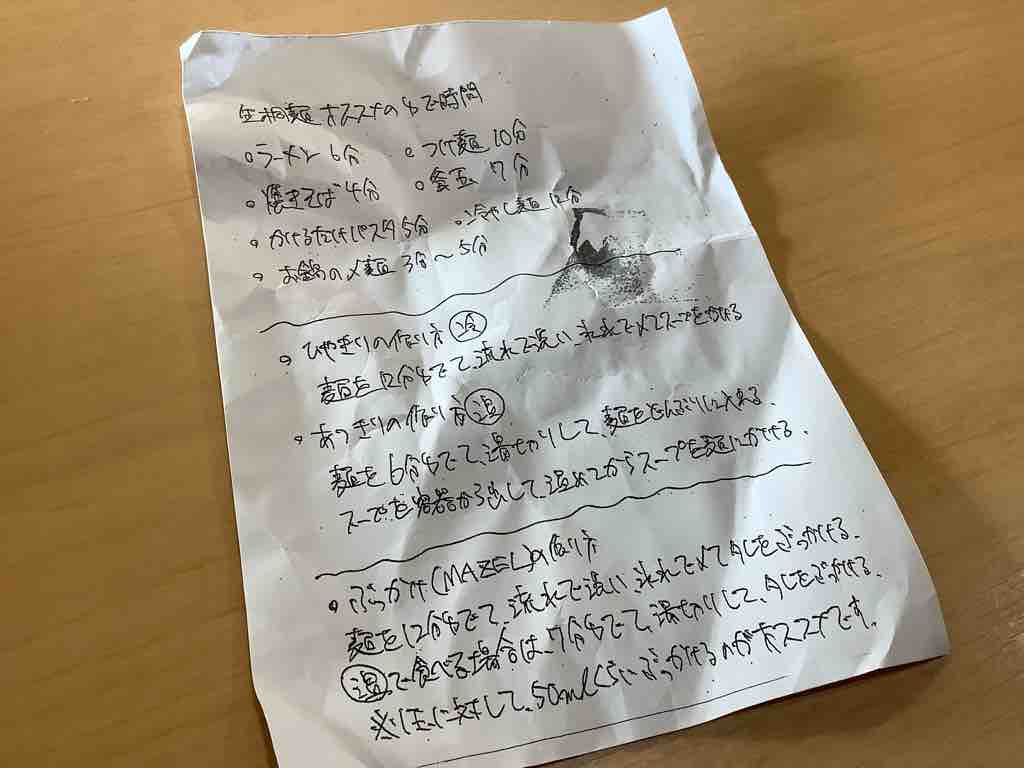 生桐麺オススメのゆで時間
○ラーメン 6分 ○つけ麺 10分
○焼きそば 4分 ○釜玉 7分
○かけるだけパスタ 5分 ○冷やし麺 12分
○お鍋の〆麺 3分〜5分
○ひやきりの作り方 冷
麺を12分ゆでて、流水で洗い、氷水で〆てスープをかける
○あつきりの作り方 温
麺を6分ゆでて、湯切りして、麺をどんぶりに入れる。
スープを容器から出して、温めてからスープを麺にかける。
○ぶっかけ(MAZEL)の作り方
麺を12分ゆでて、流水で洗い、氷水で〆てタレをぶっかける。
温で食べる場合は、7分ゆでて、湯切りして、タレをぶっかける。
※1玉に対して、50mlくらいぶっかけるのがオススメです。